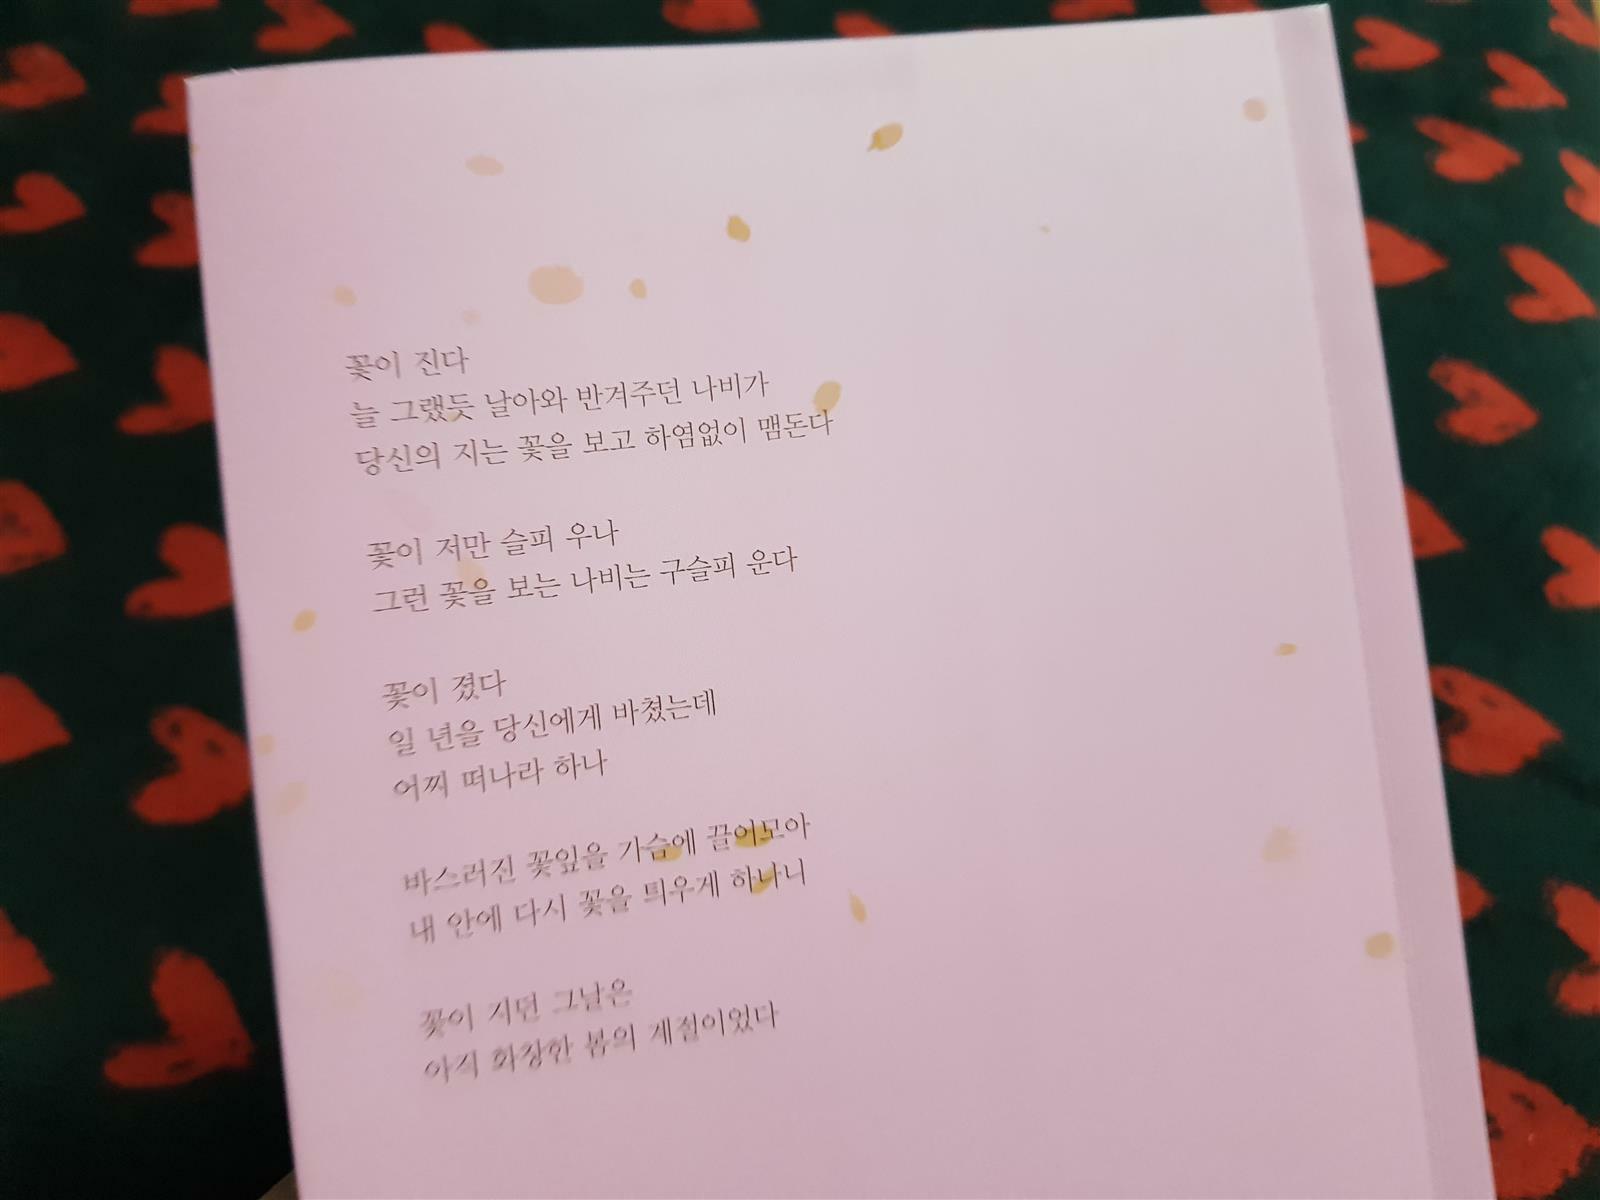 꽃이 진다
늘 그랬듯 날아와 반겨주던 나비가
당신의 지는 꽃을 보고 하염없이 맴돈다
꽃이 저만 슬피 우나
그런 꽃을 보는 나비는 구슬피 운다
꽃이 졌다
일 년을 당신에게 바쳤는데
어찌 떠나라 하나
바스러진 꽃잎을 가슴에 끌어모아
내 안에 다시 꽃을 틔우게 하나니
꽃이 지던 그날은
아직 화창한 봄의 계절이었다